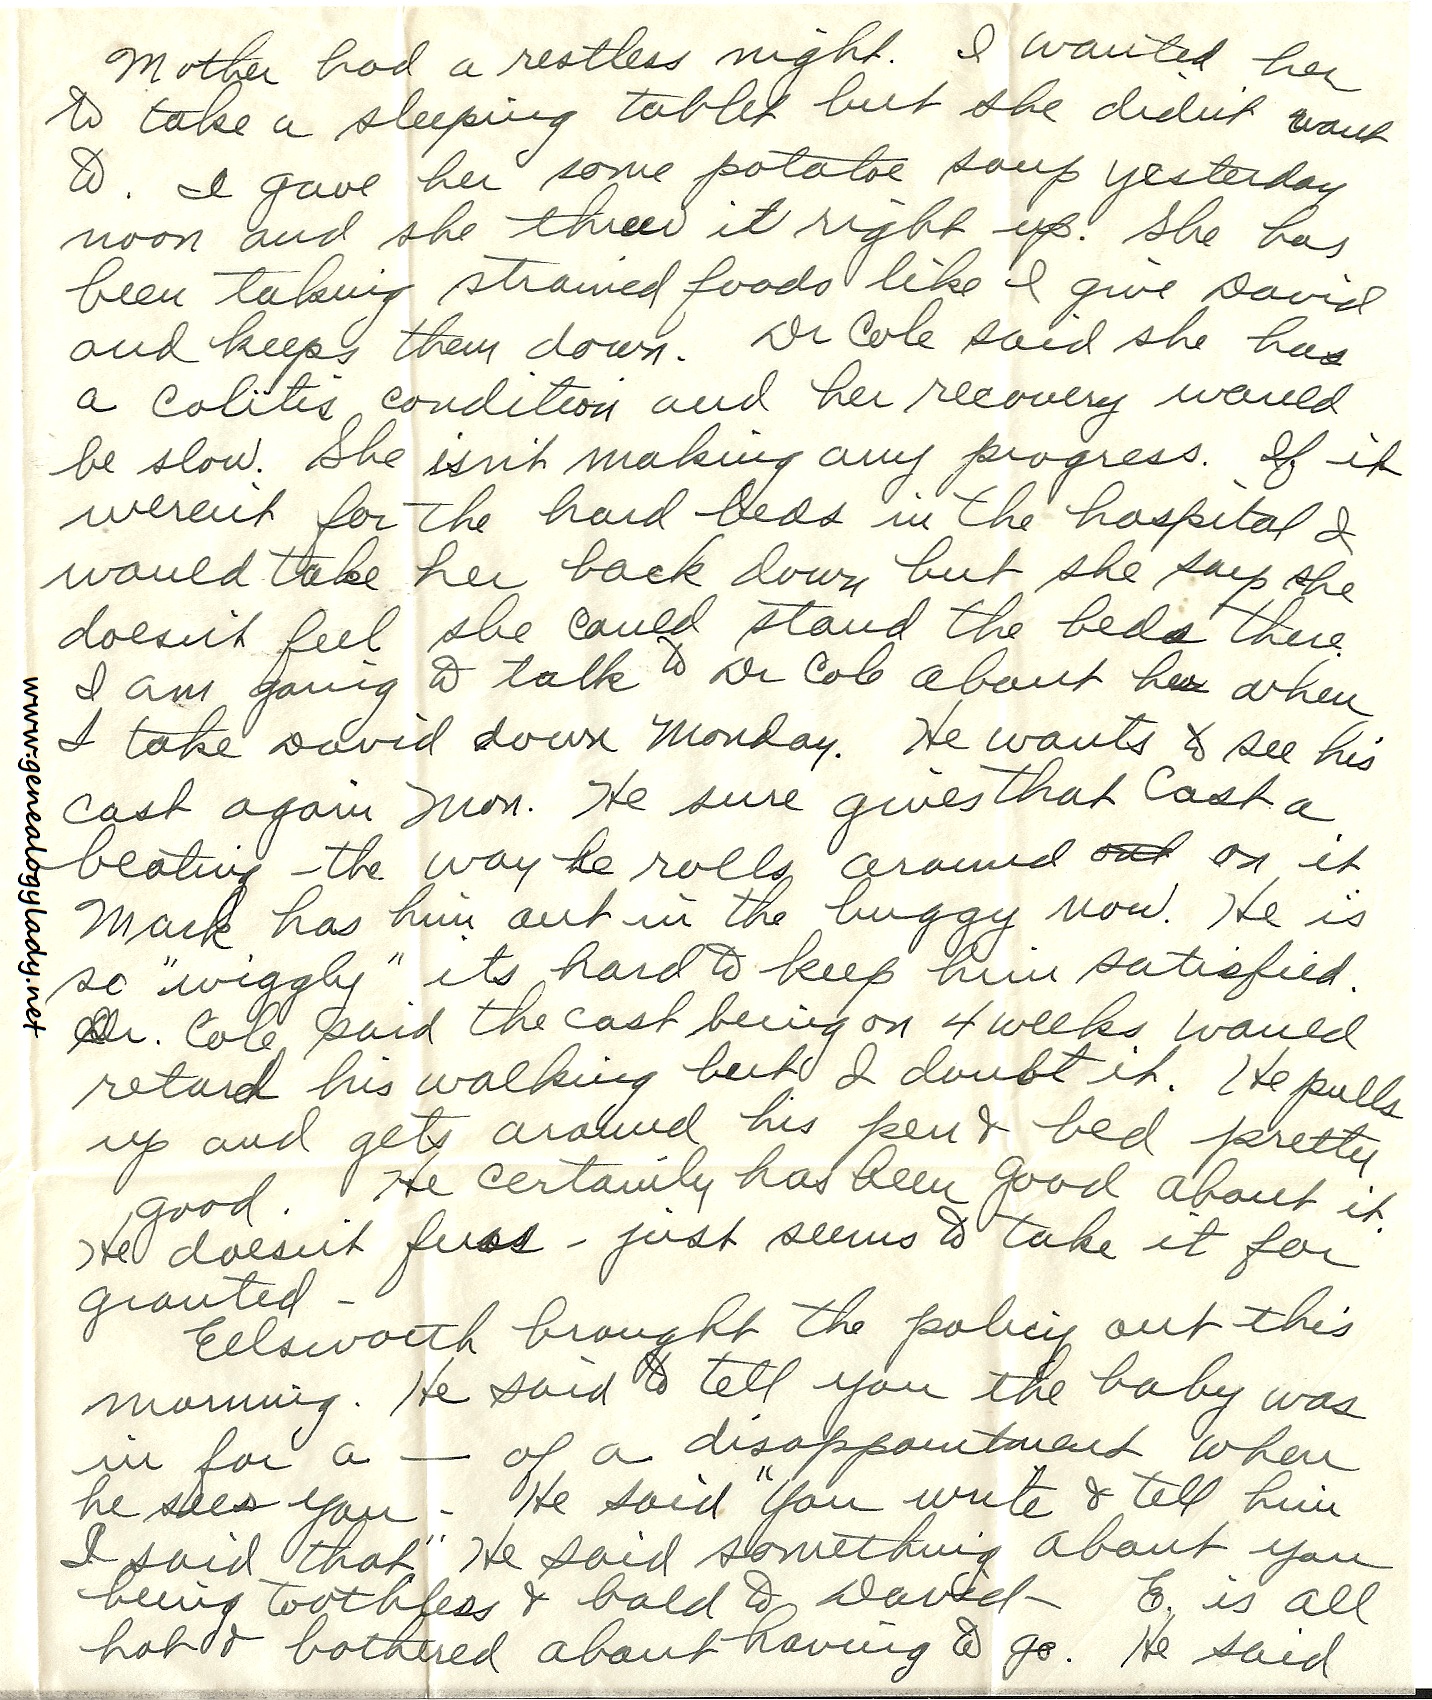 Mother had a restless night. I wanted her
to take a sleeping tablet but she didn't want
to. I gave her some potatoe soup yesterday
noon and she threw it right up. She has
been taking strained foods like I give David
and keeps them down. Dr Cole said she has
a colitis condition and her recovery would
be slow. She isn't making any progress. If it
weren't for the hard beds in the hospital I
would take her back down but she says she
doesn't feel she could stand the beds there.
I am going to talk to Dr Cole about her when
I take David down Monday. He wants to see his
cast again Mon. He sure gives that cast a
beating - the way he rolls around out on it
Mark has him out in the buggy now. He is
so "wiggly" its hard to keep him satisfied.
Dr. Cole said the cast being on 4 weeks would
retard his walking but I doubt it. He pulls
up and gets around his pen & bed pretty
good. He certainly has been good about it.
He doesn't fuss - just seems to take it for
granted -
Ellsworth brought the policy out this
morning. He said to tell you the baby was
in for a — of a disappointment when
he sees you - He said "You write & tell him
I said that" He said something about you
being toothless & bald to David - E. is all
hot & bothered about having to go. He said
www.genealogylady.net